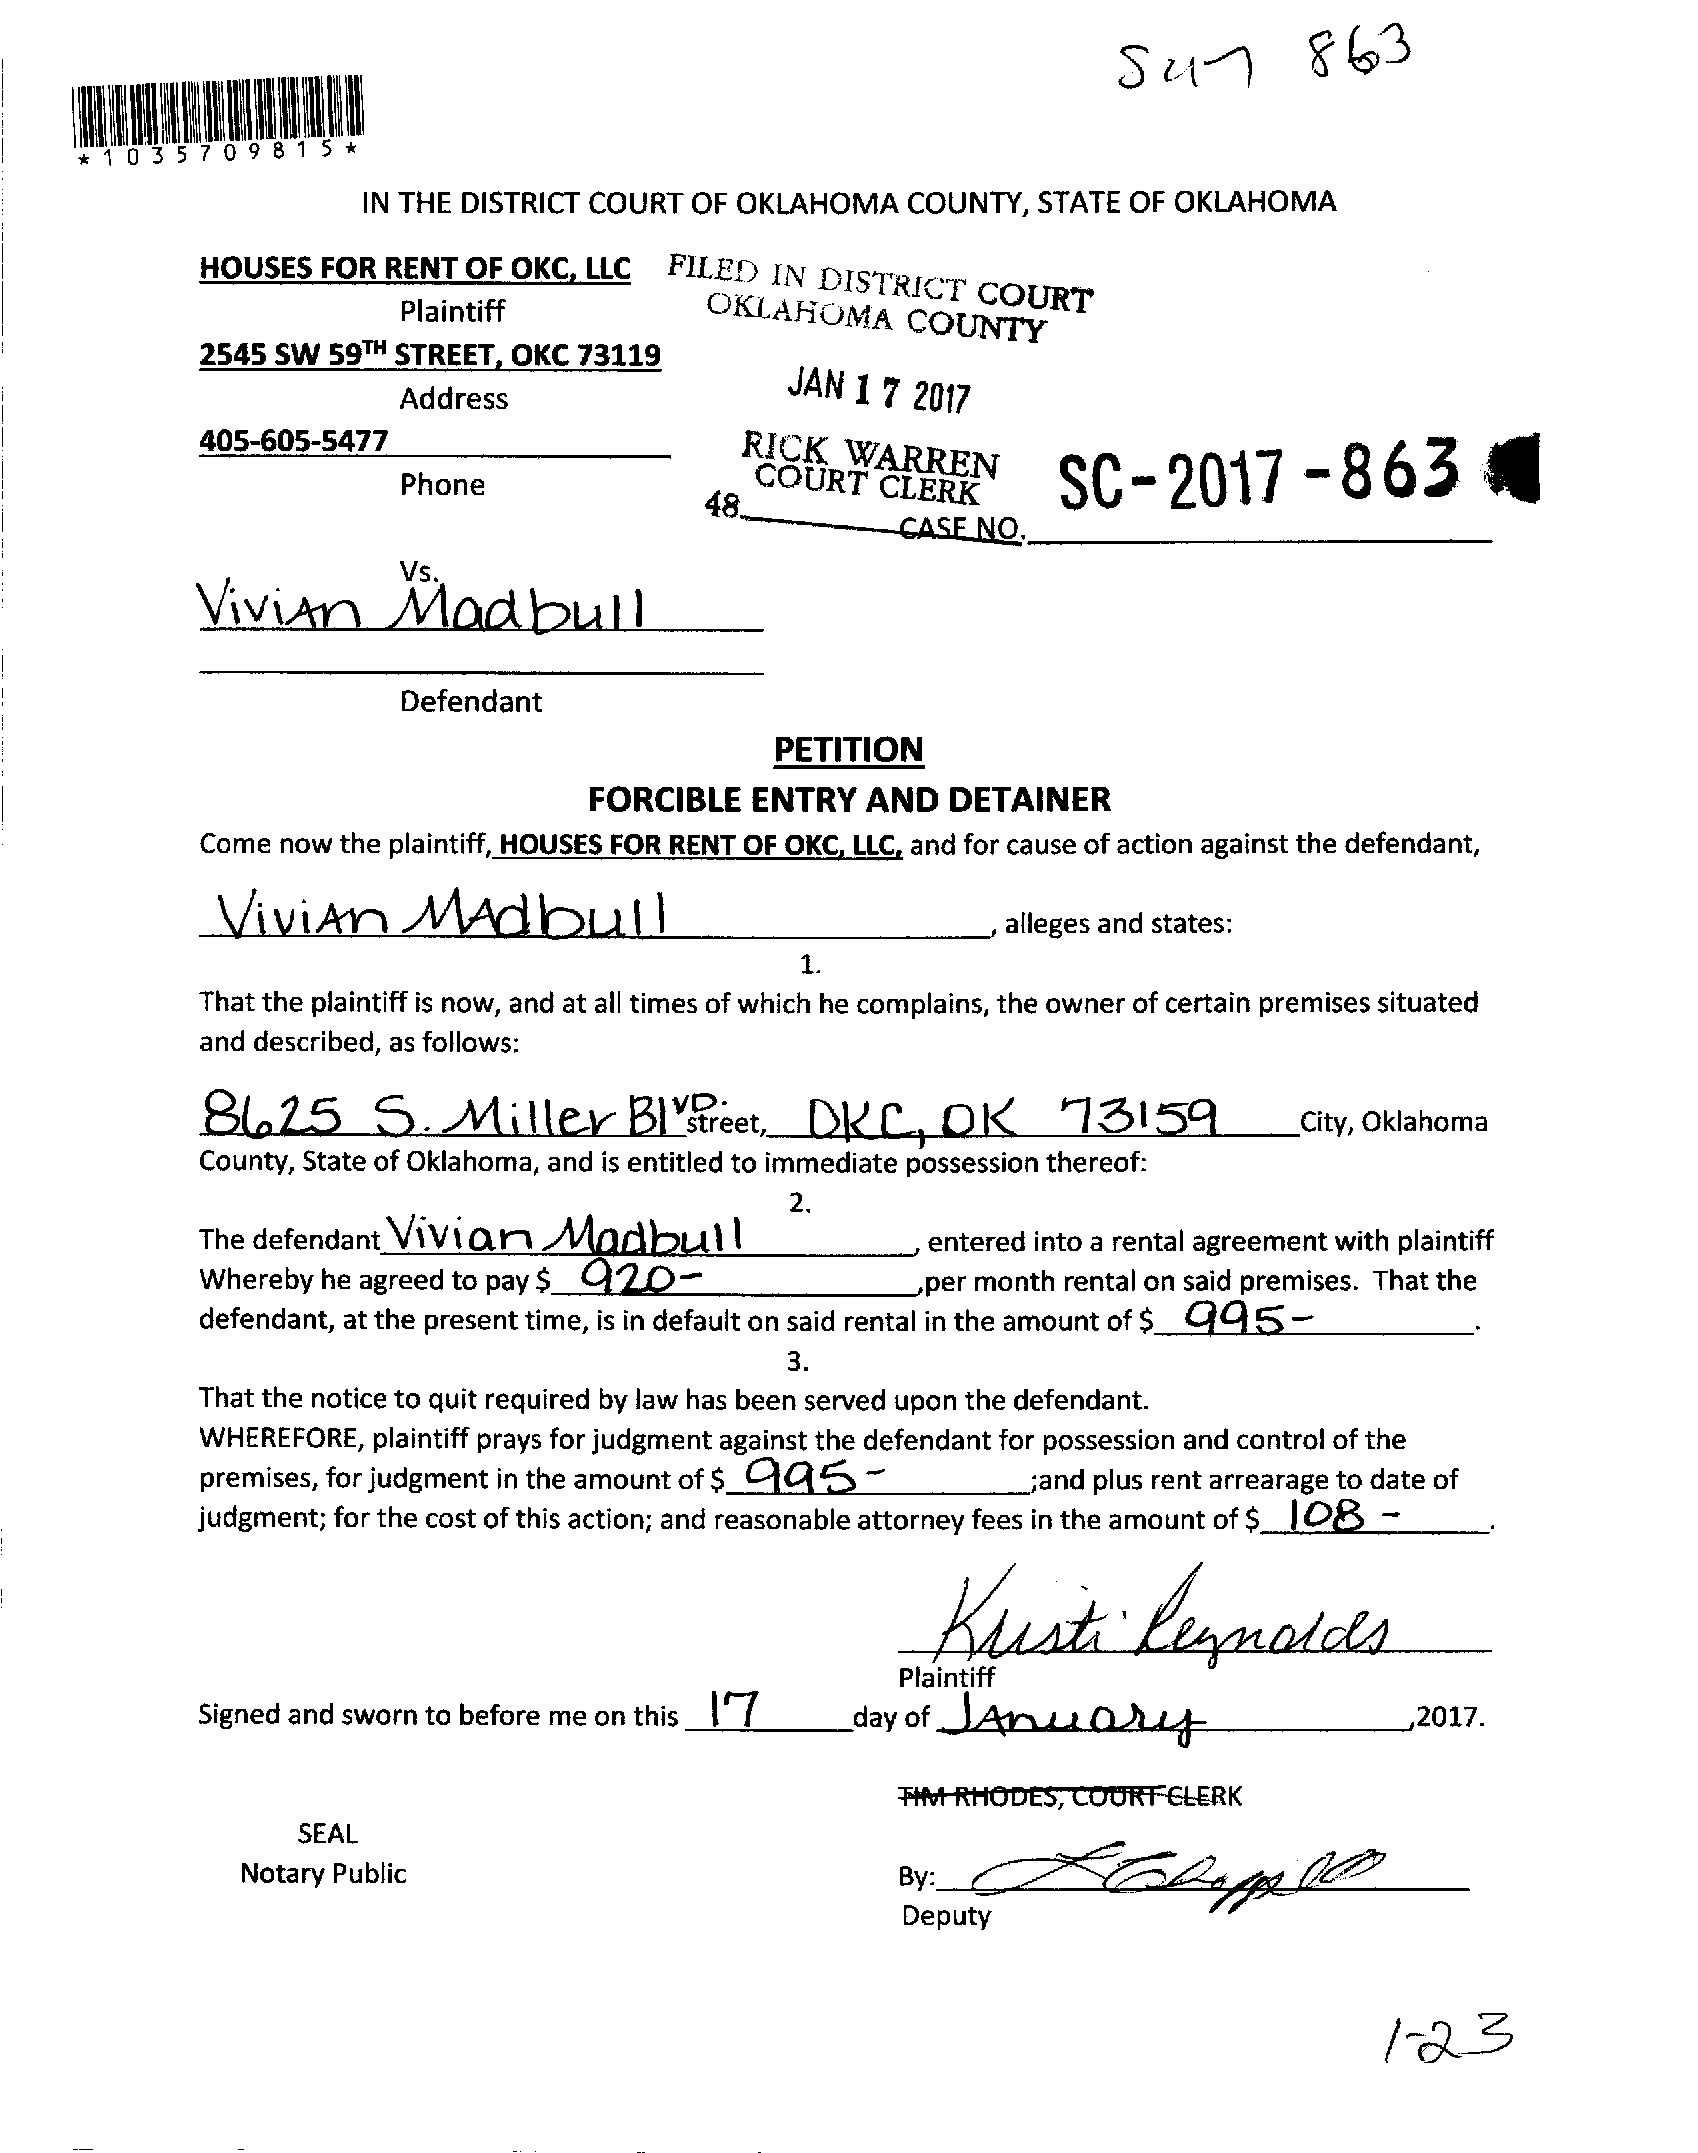 863
*1035709815*
IN THE DISTRICT COURT OF OKLAHOMA COUNTY, STATE OF OKLAHOMA
HOUSES FOR RENT OF OKC, LLC
Plaintiff
2545 SW 59TH STREET, OKC 73119
Address
405-605-5477
Phone
FILED IN DISTRICT COURT
OKLAHOMA COUNTY
JAN 17 2017
RICK WARREN
COURT CLERK
48
CASE NO. SC-2017-863
Vs.
Vivian Madbull
Defendant
PETITION
FORCIBLE ENTRY AND DETAINER
Come now the plaintiff, HOUSES FOR RENT OF OKC, LLC, and for cause of action against the defendant,
Vivian Madbull, alleges and states:
1.
That the plaintiff is now, and at all times of which he complains, the owner of certain premises situated
and described, as follows:
8625 S. Miller Blvd. street, OKC, OK 73159 City, Oklahoma
County, State of Oklahoma, and is entitled to immediate possession thereof:
2.
The defendant Vivian Madbull, entered into a rental agreement with plaintiff
Whereby he agreed to pay $ 920- ,per month rental on said premises. That the
defendant, at the present time, is in default on said rental in the amount of $ 995- .
3.
That the notice to quit required by law has been served upon the defendant.
WHEREFORE, plaintiff prays for judgment against the defendant for possession and control of the
premises, for judgment in the amount of $ 995- ;and plus rent arrearage to date of
judgment; for the cost of this action; and reasonable attorney fees in the amount of $ 108 - .
Kristi Reynolds
Plaintiff
Signed and sworn to before me on this 17 day of January ,2017.
TIM RHODES, COURT CLERK
SEAL
Notary Public
By:
Deputy
1-23